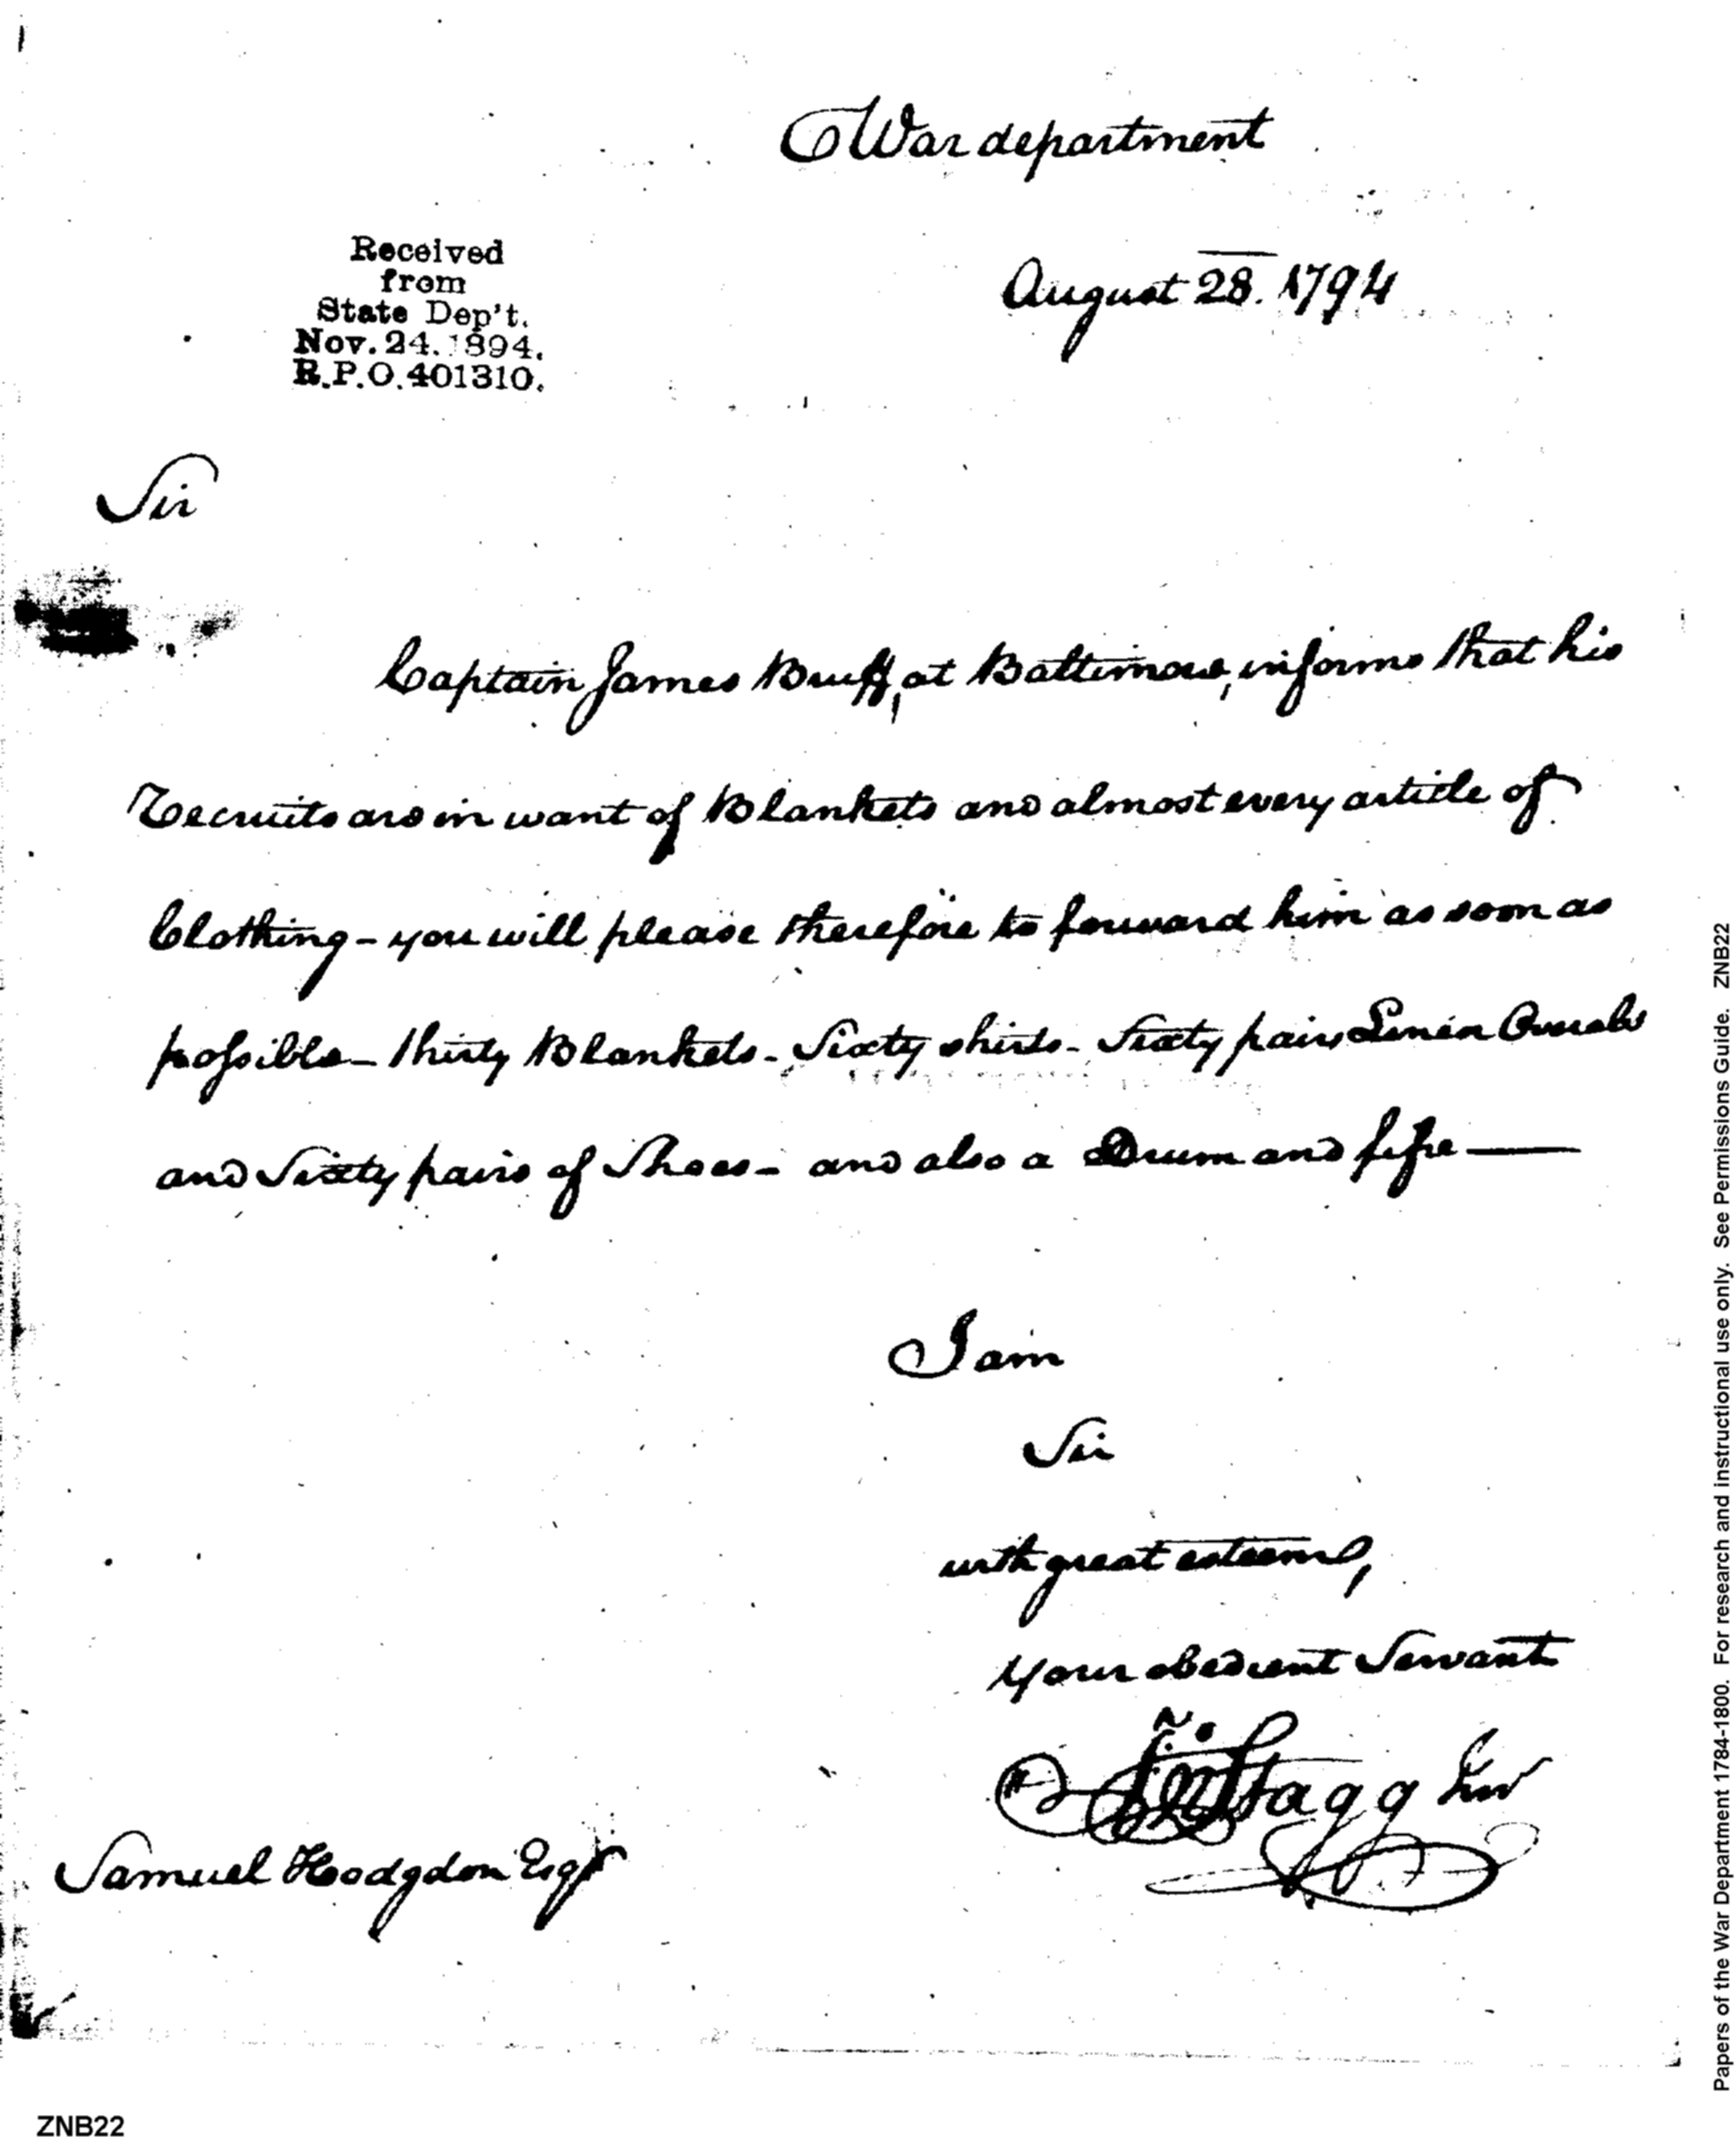 War department
August 28. 1794
Received
from
State Dep't.
Nov. 24. 1894.
R.P.O. 401310.
Sir
Captain James Bruff, at Baltimore, informs that his
Recruits are in want of Blankets and almost every article of
Clothing - you will please therefore to forward him as soon as
possible - thirty Blankets - Sixty shirts - Sixty pairs Linen Overalls
and Sixty pairs of Shoes - and also a Drum and fife —
I am
Sir
with great esteem,
Your obedient Servant
Jno Stagg Jun
Samuel Hodgdon Esqr
ZNB22
Papers of the War Department 1784-1800. For research and instructional use only. See Permissions Guide. ZNB22